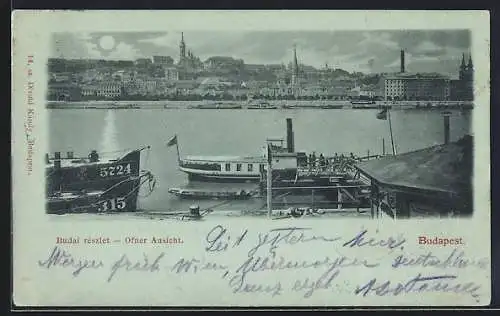 14. sz. Divald Károly, Budapest.
5724
315
Budai részlet — Ofner Ansicht.
Budapest.
Seit gestern hier,
Morgen früh Wien, Übermorgen Deutschland
Ganz